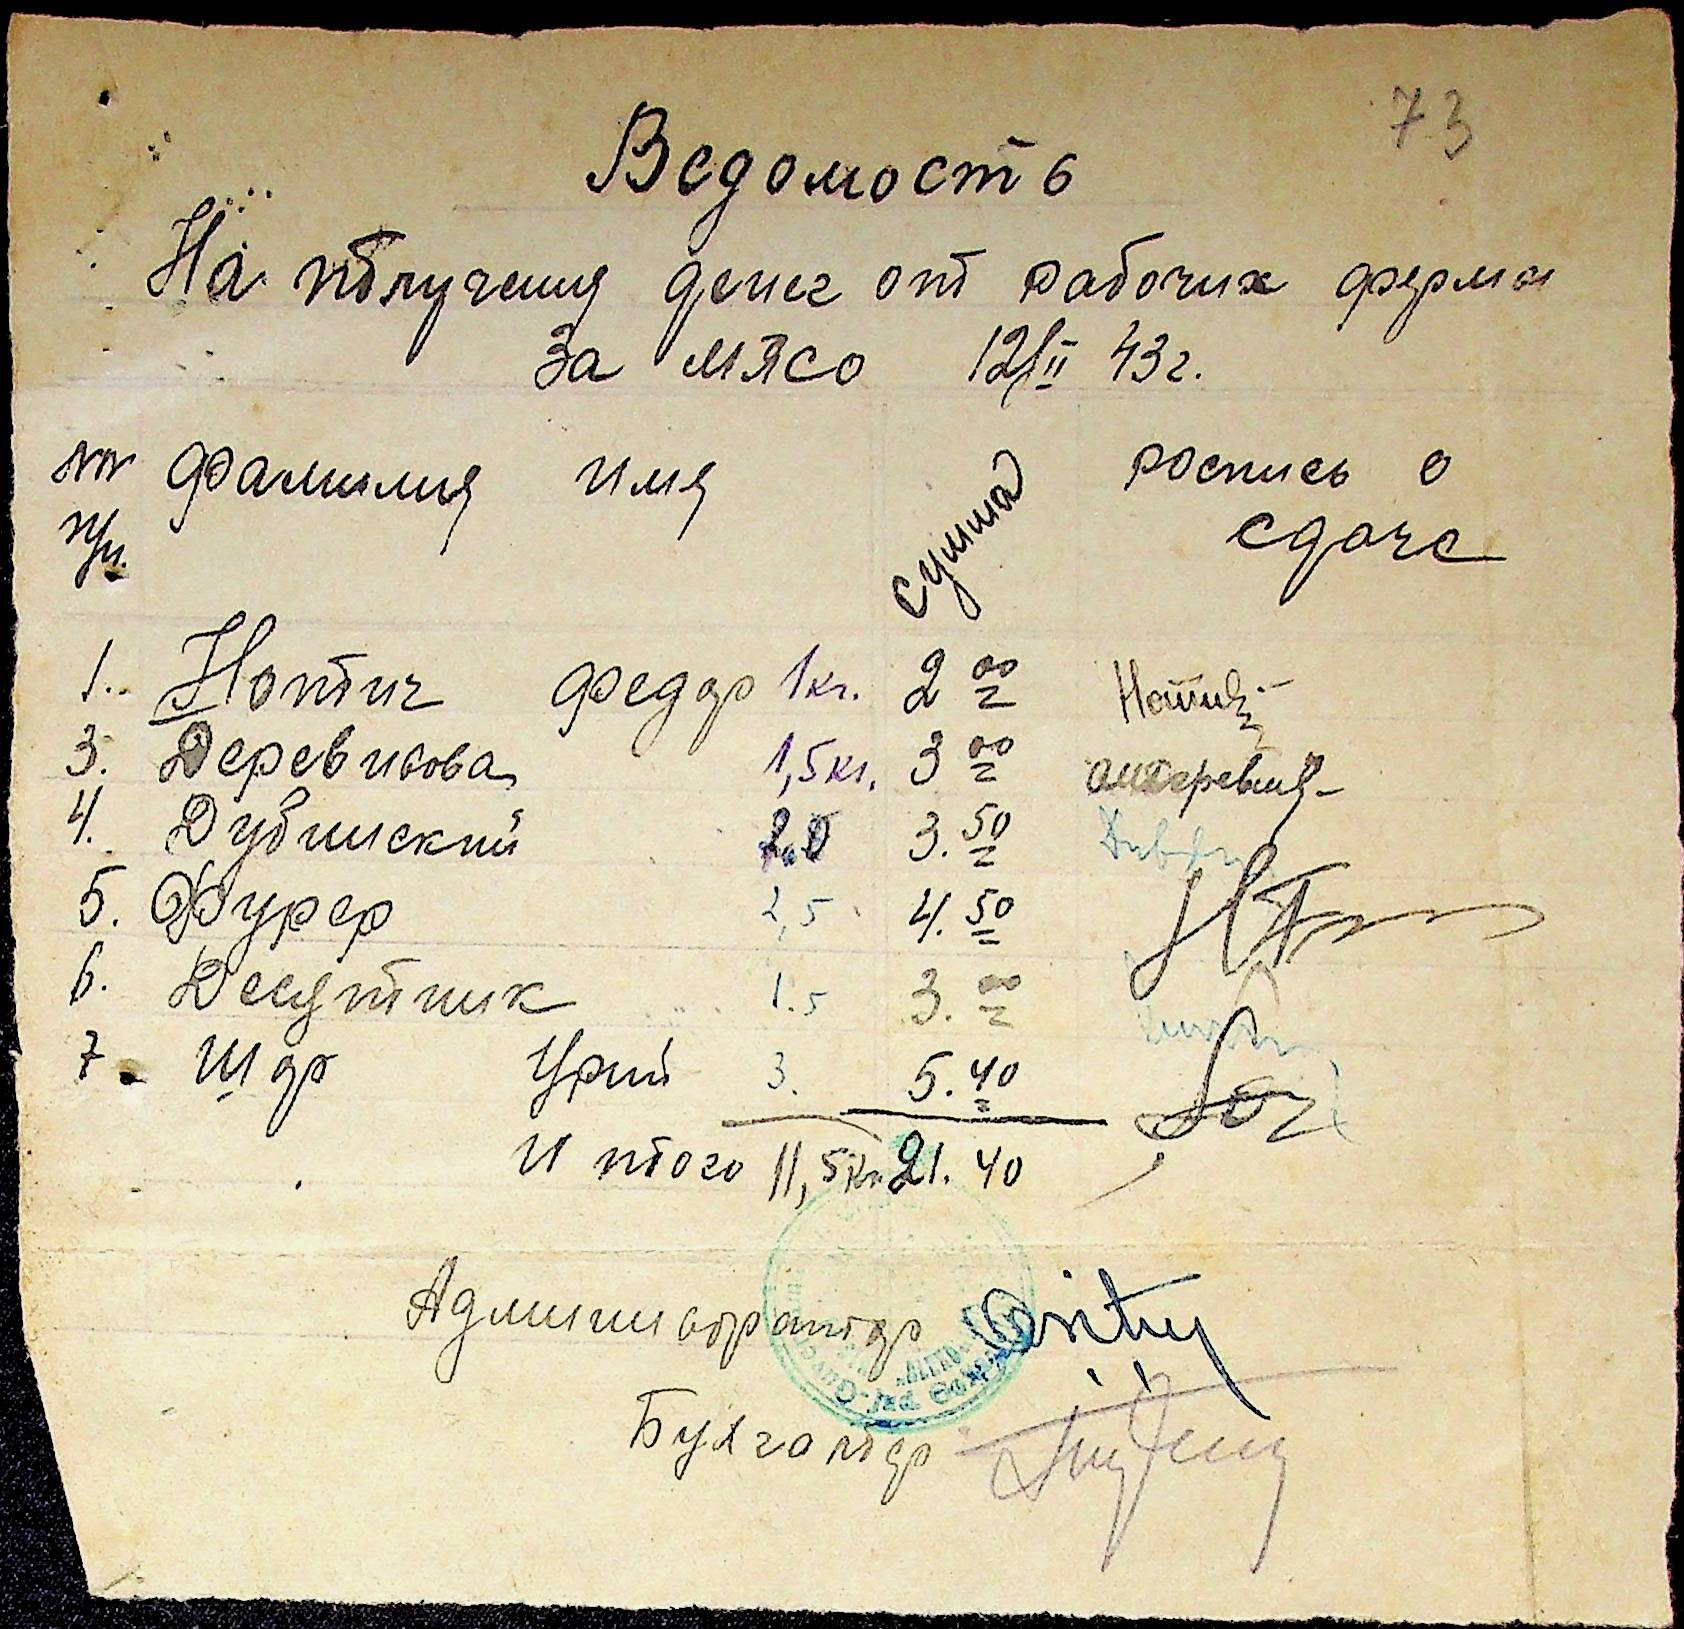 73
Ведомость
На получения денег от рабочих фермы
за мясо 12/II 43 г.
NN п/п. Фамилия имя сумма роспись о сдаче
1. Нотич Федор 1 кг. 2 00 Нотич
3. Деревикова 1,5 кг. 3 00
4. Дубинский 2,0 3. 50
5. Фурер 2,5 4. 50
6. Десятник 1.5 3. 00
7. Шор Урий 3. 5. 40
Итого 11,5 кг. 21. 40
Администратор
Бухгалтер